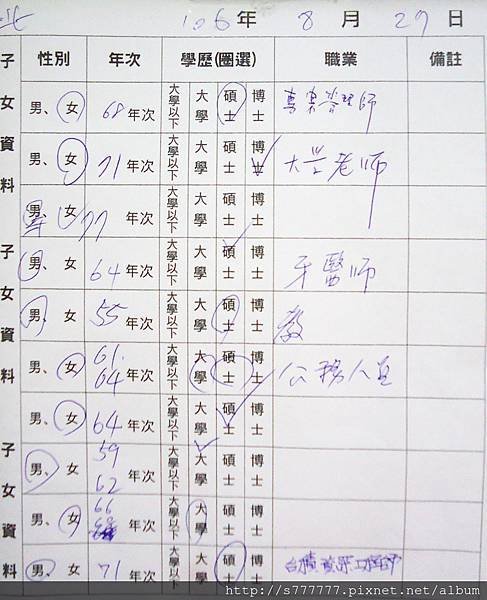 北 106年 8月 29日
子女資料 性別 年次 學歷(圈選) 職業 備註
男、女 68年次 大學以下 大學 碩士 博士 專案管理師
男、女 71年次 大學以下 大學 碩士 博士 大學老師
男、女 77年次 大學以下 大學 碩士 博士
子女資料 男、女 64年次 大學以下 大學 碩士 博士 牙醫師
男、女 55年次 大學以下 大學 碩士 博士 教
男、女 61. 64年次 大學以下 大學 碩士 博士 公務人員
男、女 64年次 大學以下 大學 碩士 博士
子女資料 男、女 59 62年次 大學以下 大學 碩士 博士
男、女 66 年次 大學以下 大學 碩士 博士
男、女 71年次 大學以下 大學 碩士 博士 台積 工程師
http://s777777.pixnet.net/album